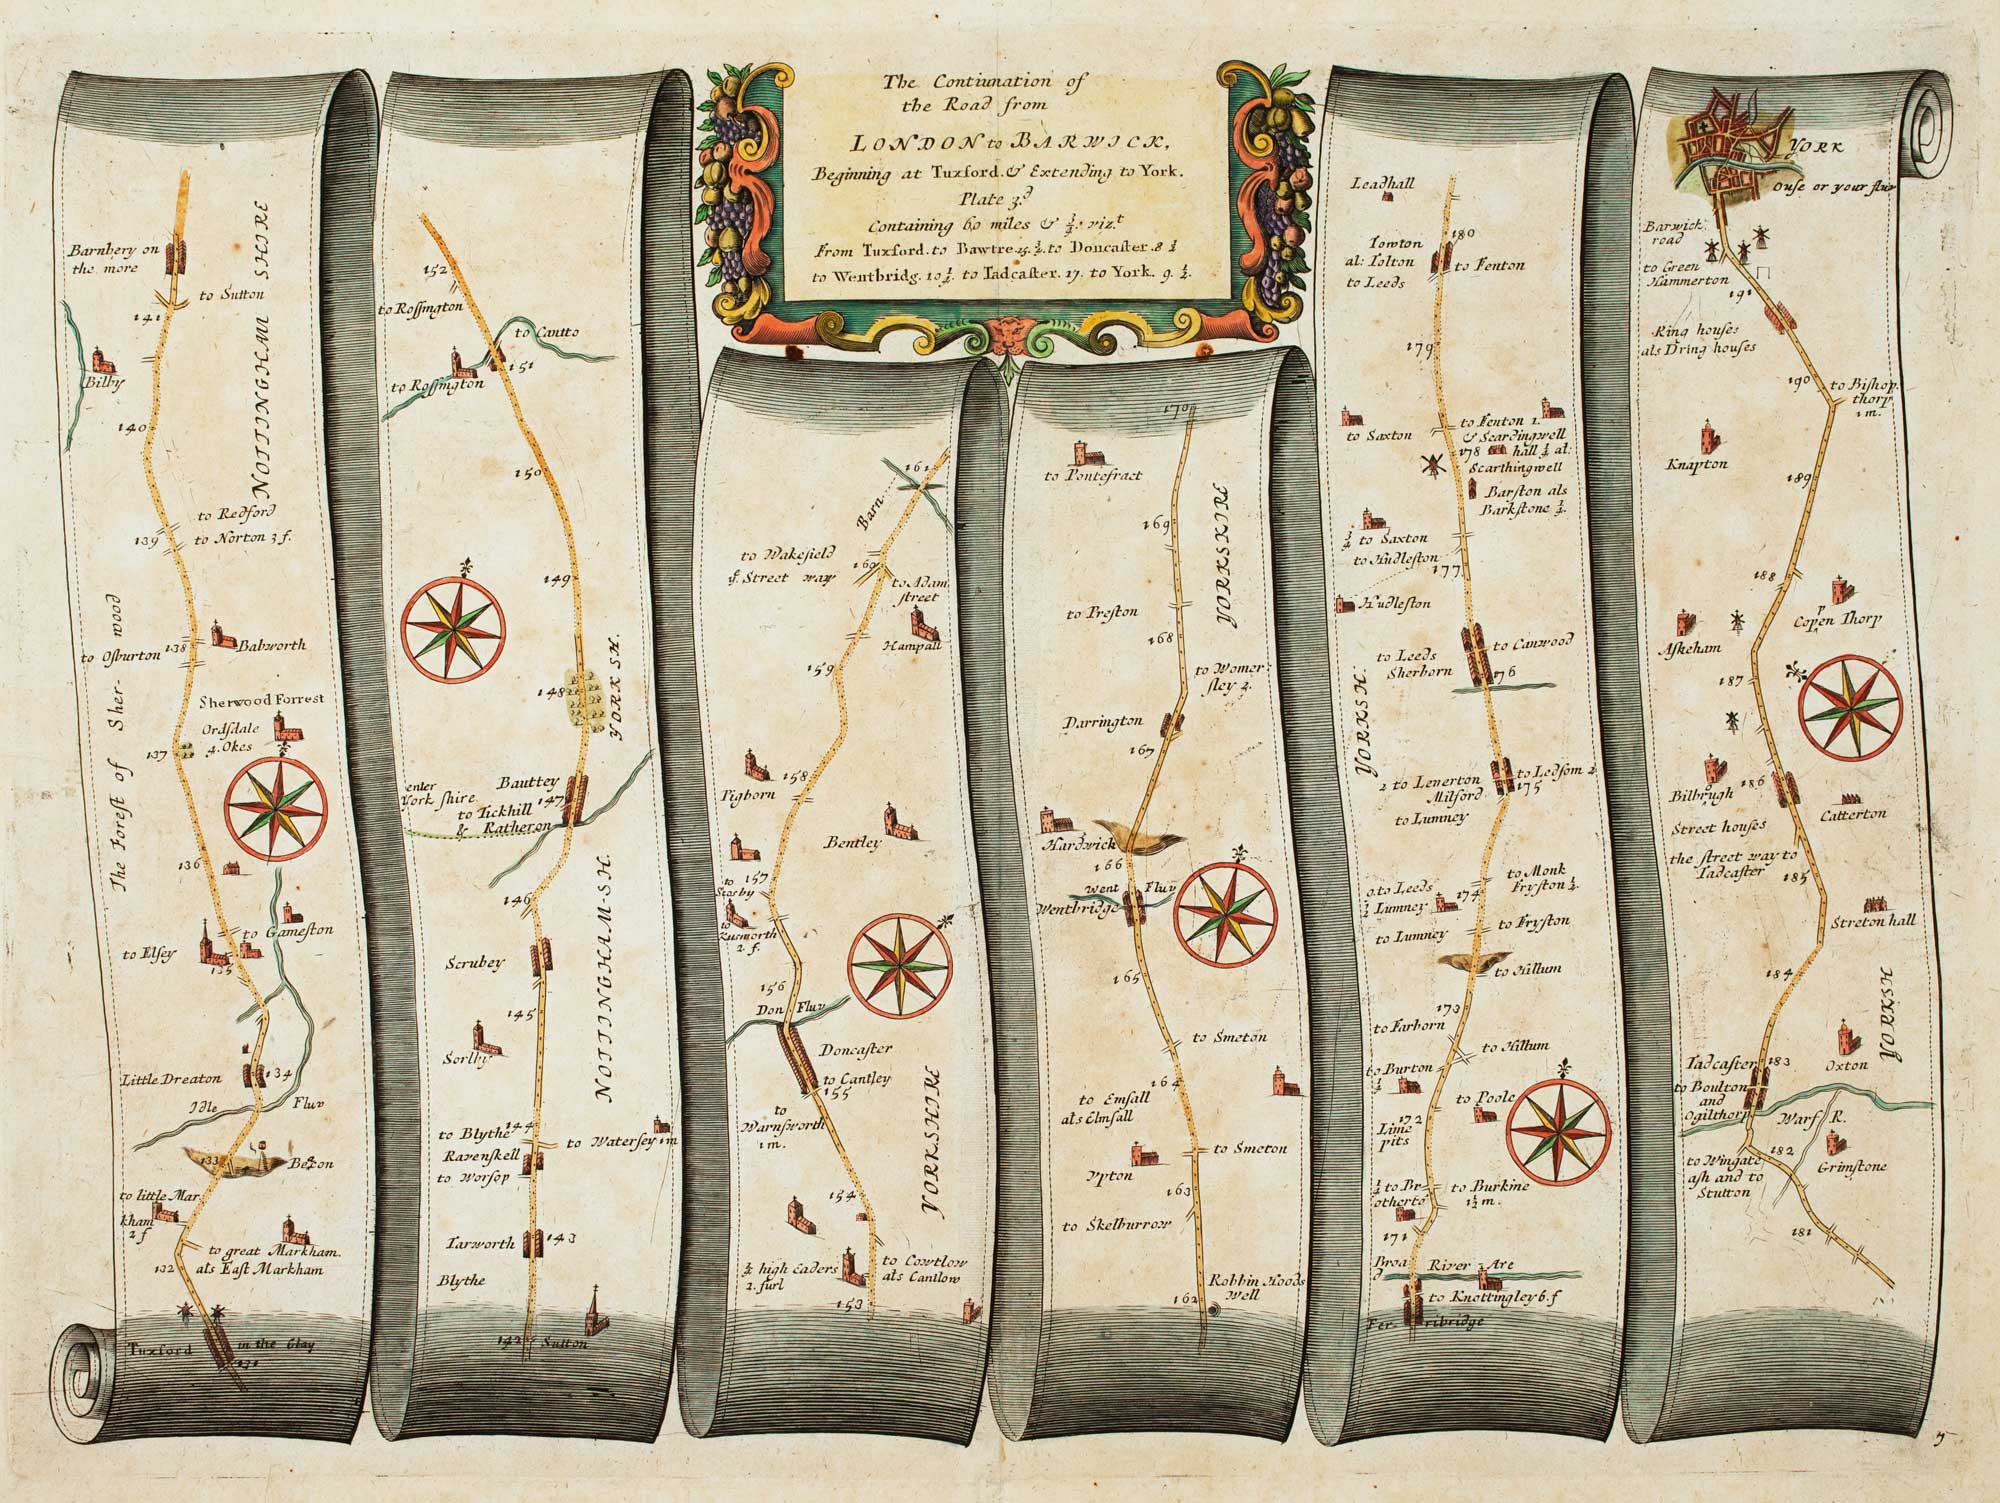 The Contiunation of
the Road from
LONDON to BARWICK,
Beginning at Tuxford. & Extending to York.
Plate 3.d
Containing 60 miles & 3/4. vizt
From Tuxford. to Bawtre. 15. 1/2. to Doncaster. 8 1/2
to Wentbridg. 10 1/2 to Tadcaster. 17. to York. 9. 1/4.
Barnbery on
the more
to Sutton
NOTTINGHAM SHIRE
141
Bilby
140
to Redford
139
to Norton 3 f.
The Forest of Sher-wood
to Osburton
138
Babworth
Sherwood Forrest
Ordsdale
4. Okes
137
136
to Gameston
to Elsey
135
Little Dreaton
134
Idle
Fluv
133
to little Mar
kham
2 f
to great Markham.
als East Markham
132
Tuxford
in the Clay
131
152
to Rossington
to Cantto
151
to Rossington
150
149
148
YORK SH.
enter
York shire
Bauttey
147
to Tickhill
& Ratheron
146
NOTTINGHAM-SH.
Scrubey
145
Sorlby
144
to Blythe
to Watersey 1m
Ravenskell
to Worsop
Yarworth
143
Blythe
142
Sutton
161
Barn
to Wakefield
ye Street way
160
to Adam
street
Hampall
159
158
Pigborn
Bentley
157
to
to
2 f.
156
Don
Fluv
Doncaster
to Cantley
155
to
Warnsworth
1 m.
YORKSHIRE
154
1/2 high Eaders
2. furl
to Cowtlow
als Cantlow
153
170
to Pontefract
169
YORKSKIRE
to Preston
168
to Womer
sley 2.
Darrington
167
Hardwick
166
Went
Fluv
Wentbridge
165
to Smeton
164
to Emsall
als Elmsall
to Smeton
Upton
163
to Skelburrow
Robbin Hoods
Well
162
Leadhall
Towton
al: Tolton
180
to Fenton
to Leeds
179
to Saxton
to Fenton 1.
& Scardingwell
178
hall 1/2 al:
Scarthingwell
Barston als
Barkstone 1/2.
to Saxton
to Hudleston
177
Hudleston
to Canwood
to Leeds
Sherborn
176
YORKSH.
2 to Leverton
Milford
to Ledsom 2
175
to Lumney
to Monk
Fryston 1/2.
to Leeds
Lumney
174
to Lumney
to Fryston
to Hillum
173
to Farborn
to Hillum
to Burton
1/2
to Poole
172
Lime
pits
1/2 to Br
otherto
to Burkine
1 1/2 m.
171
Broa
d
River Are
to Knottingley 6. f
Fer-ribridge
YORK
Ouse or your fluv
Barwick
road
to Green
Hammerton
191
Ring houses
als Dring houses
190
to Bishop
thorp
1 m.
Knapton
189
188
Copen Thorp
Askeham
187
Bilbrugh
186
Catterton
Street houses
the street way to
Tadcaster
185
Streton hall
184
YORKSH
Tadcaster
183
Oxton
to Boulton
and
Ogilthorp
Warf R.
182
to Wingate
ash and to
Stutton
Grimstone
181
5